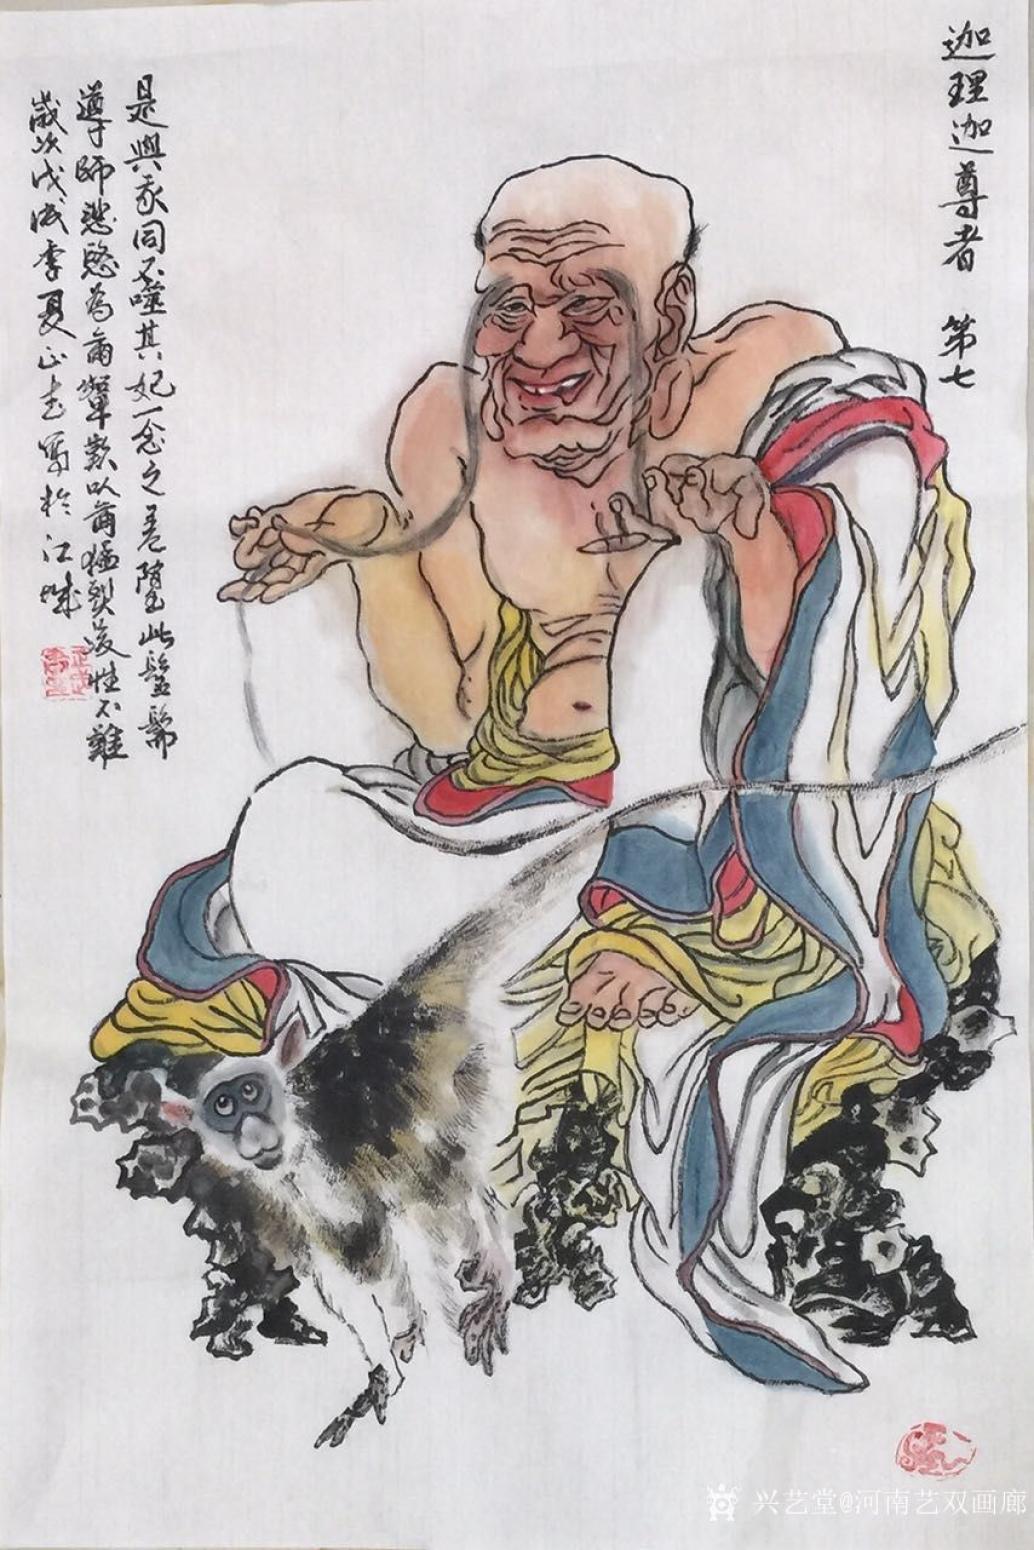 迦理迦尊者 第七
是與我同不噬其妃一念之差墮此髬髵
導師悲愍為爾顰歎以爾猛烈復性不難
歲次戊戌季夏正志寫於江城
兴艺堂@河南艺双画廊